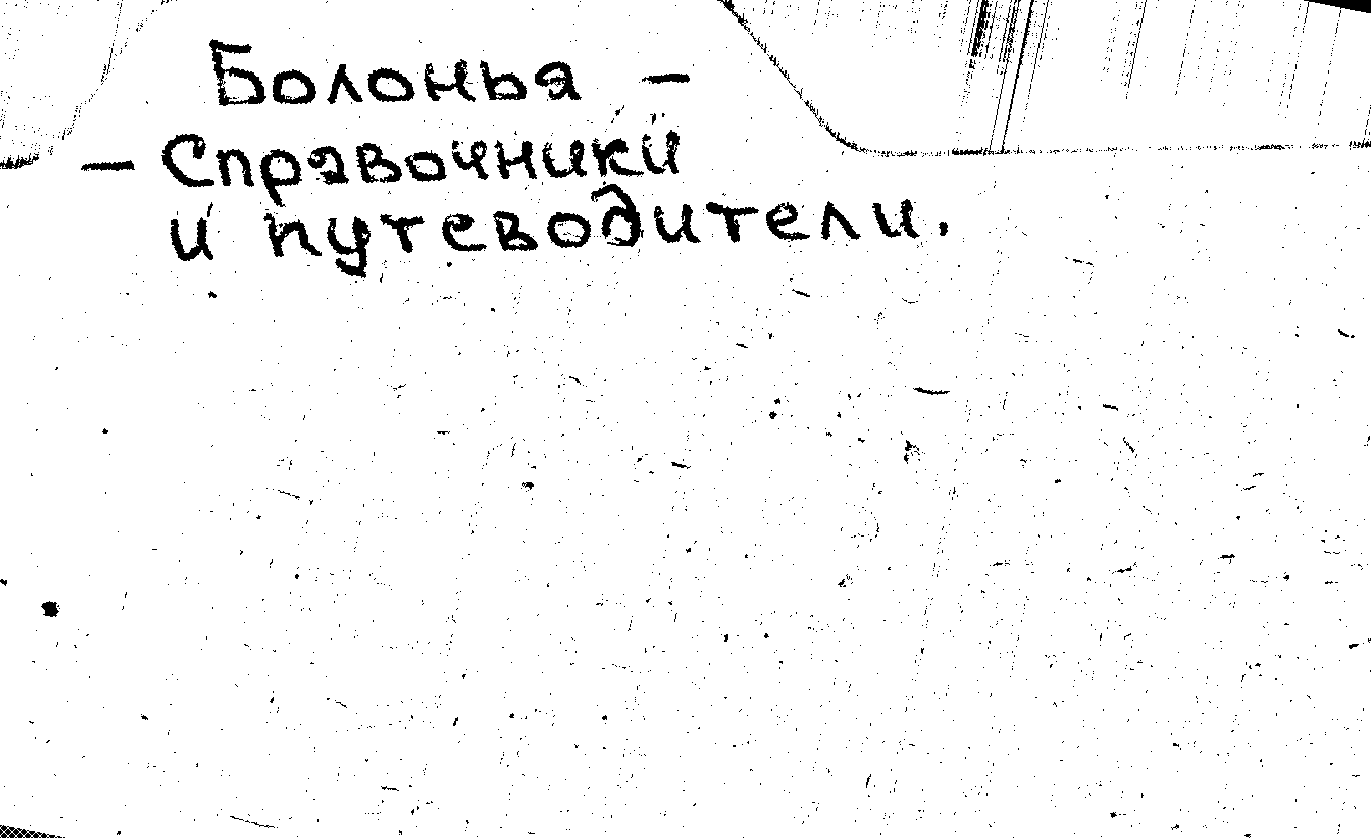 Болонья –
– Справочники
и путеводители.